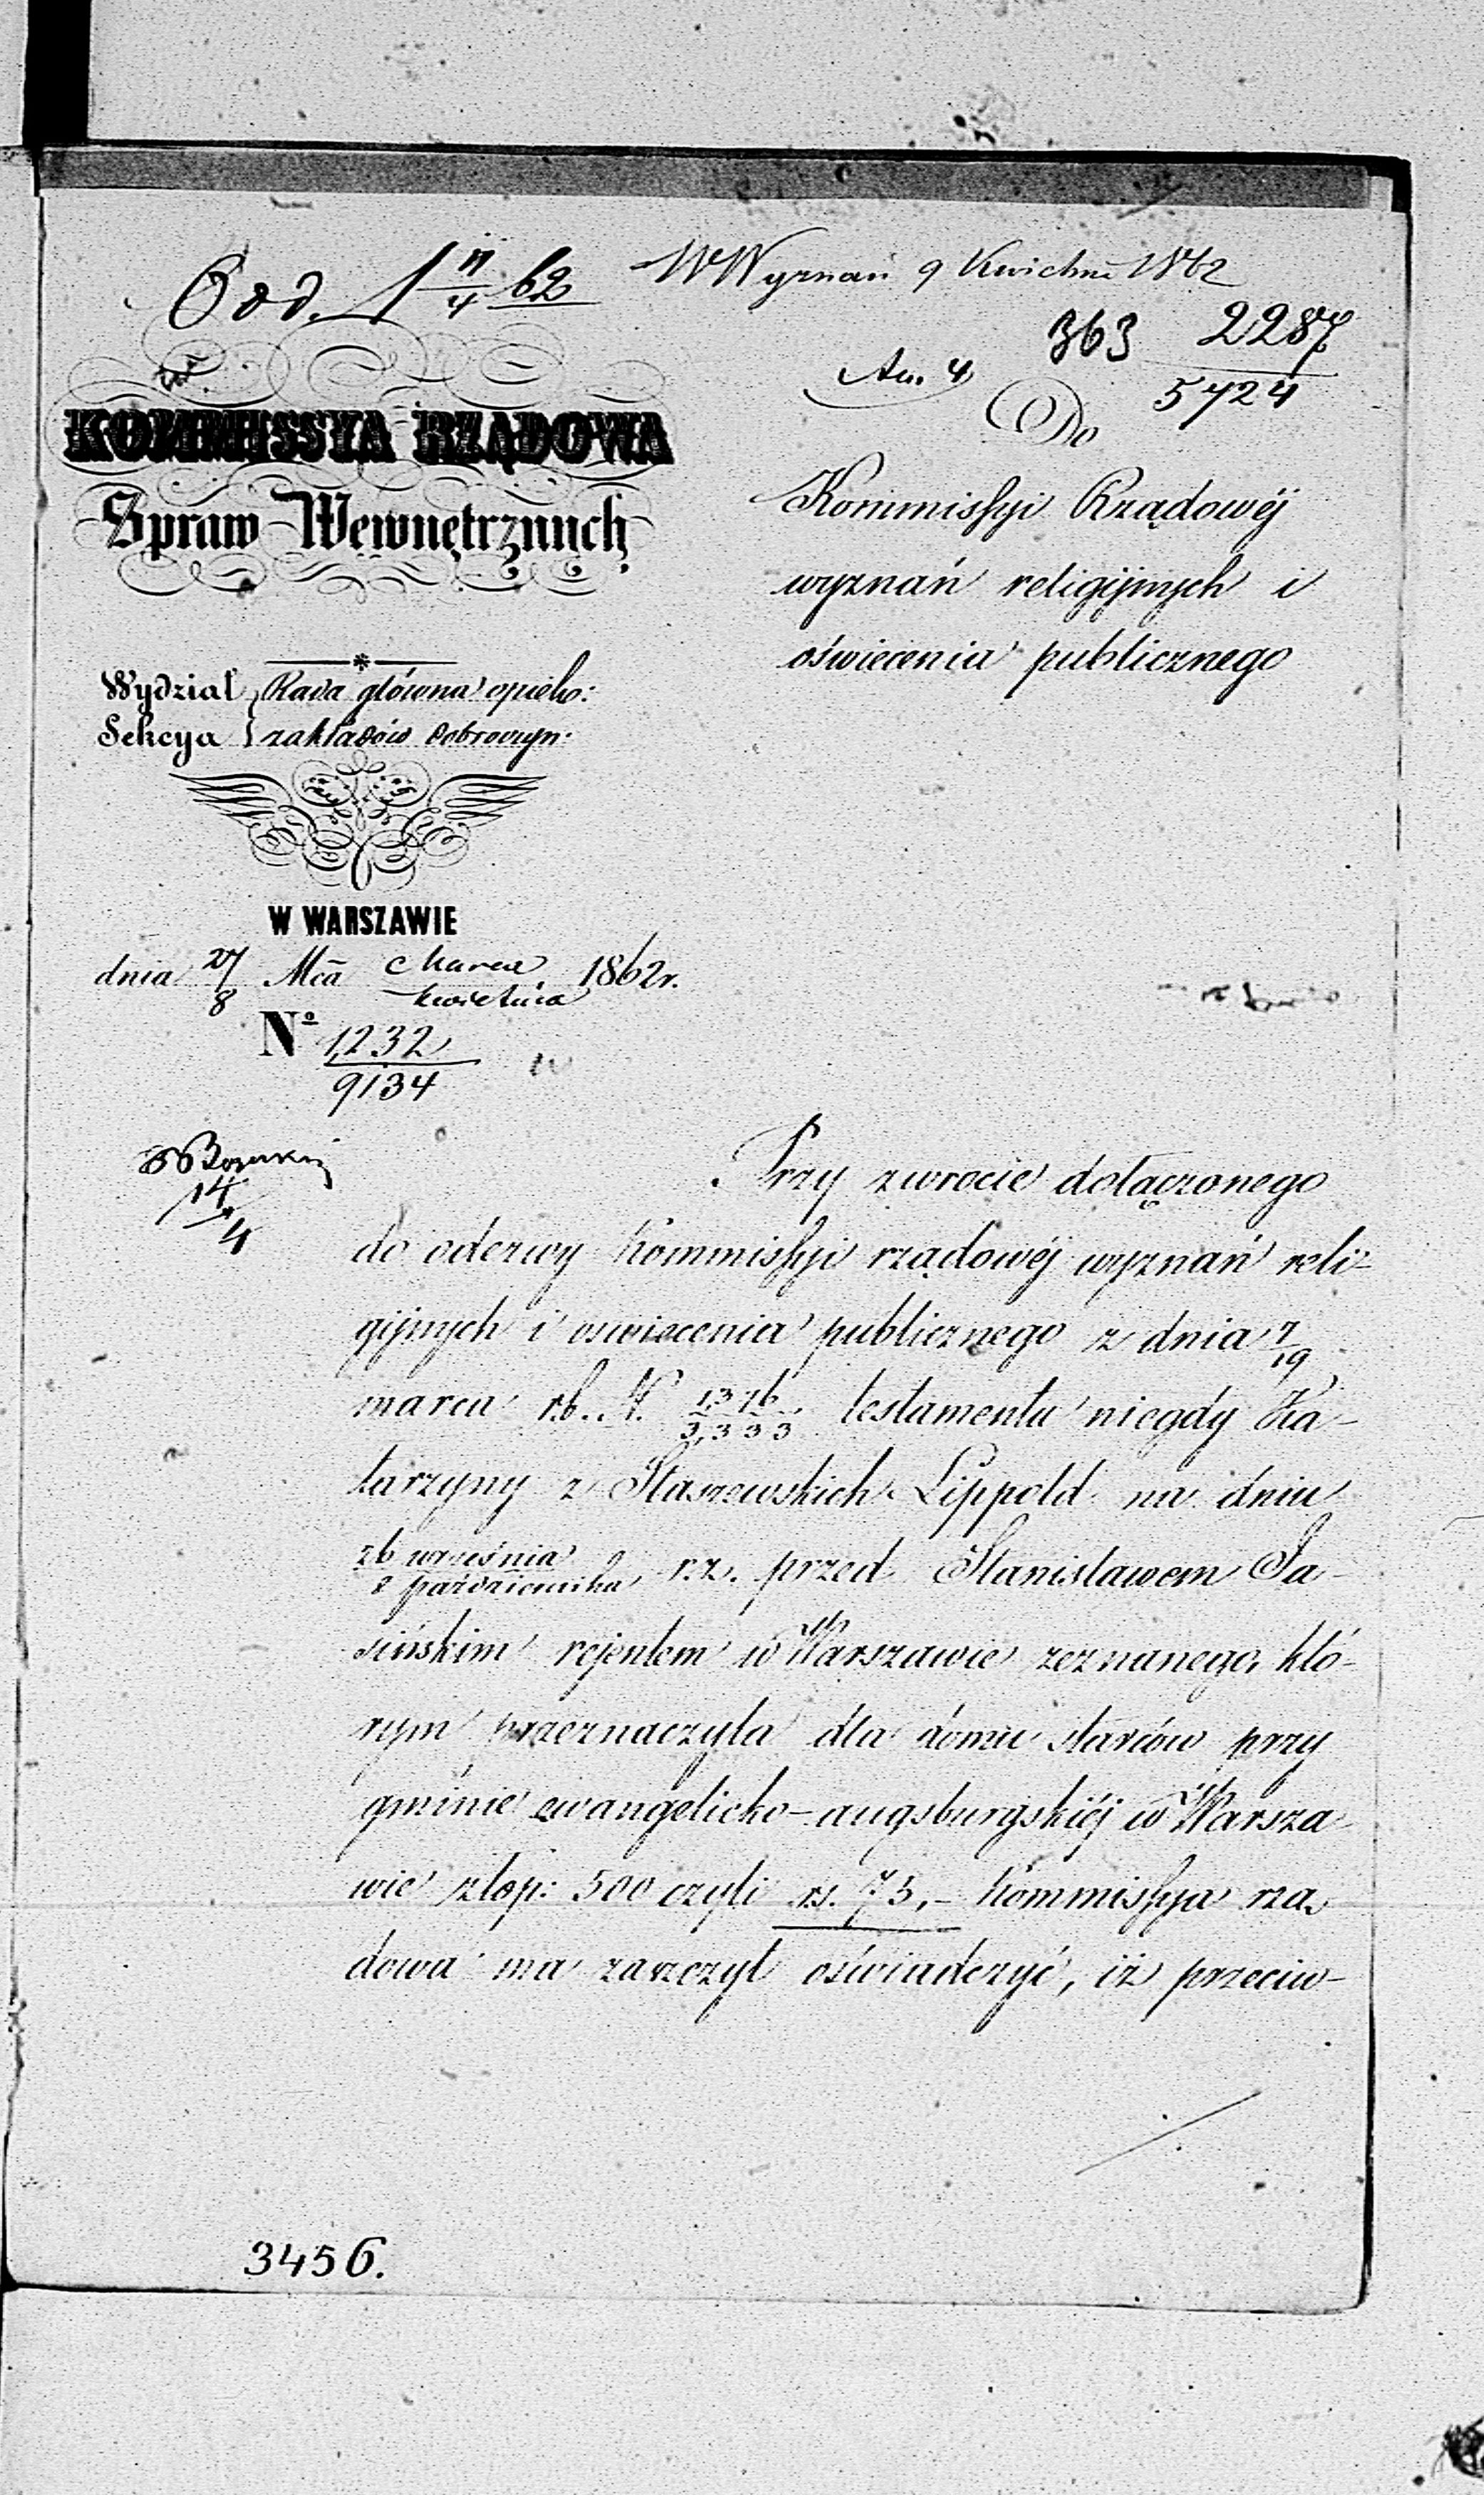 Odd. 1 11/4 62
W Wyznań 9 Kwietnia 1862
363 2287
5724
An. 4
KOMMISSYA RZĄDOWA
Spraw Wewnętrznych
Do
Kommissyi Rządowéj
wyznań religijnych i
oświecenia publicznego
Wydział Rada główna opiek:
Sekcya zakładów dobroczyn:
W WARSZAWIE
dnia 27/8 Mca Marca/kwietnia 1862 r.
Nº 1,232
9134
14/4
Przy zwrocie dołączonego
do odezwy kommissyi rządowéj wyznań reli-
gijnych i oswiecenia publicznego z dnia 7/19
marca r.b. N. 1,376/3,333 testamentu niegdy Ka-
tarzyny z Staszewskich Lippold na dniu
26 września/8 października r.z. przed Stanisławem Ja-
sińskim rejentem w Warszawie zeznanego, któ-
rym przeznaczyła dla domu starców przy
gminie ewangelicko-augsburgskiéj w Warsza-
wie złop: 500 czyli rs. 75,- kommissya rzą-
dowa ma zaszczyt oświadczyć, iż przeciw-
3456.